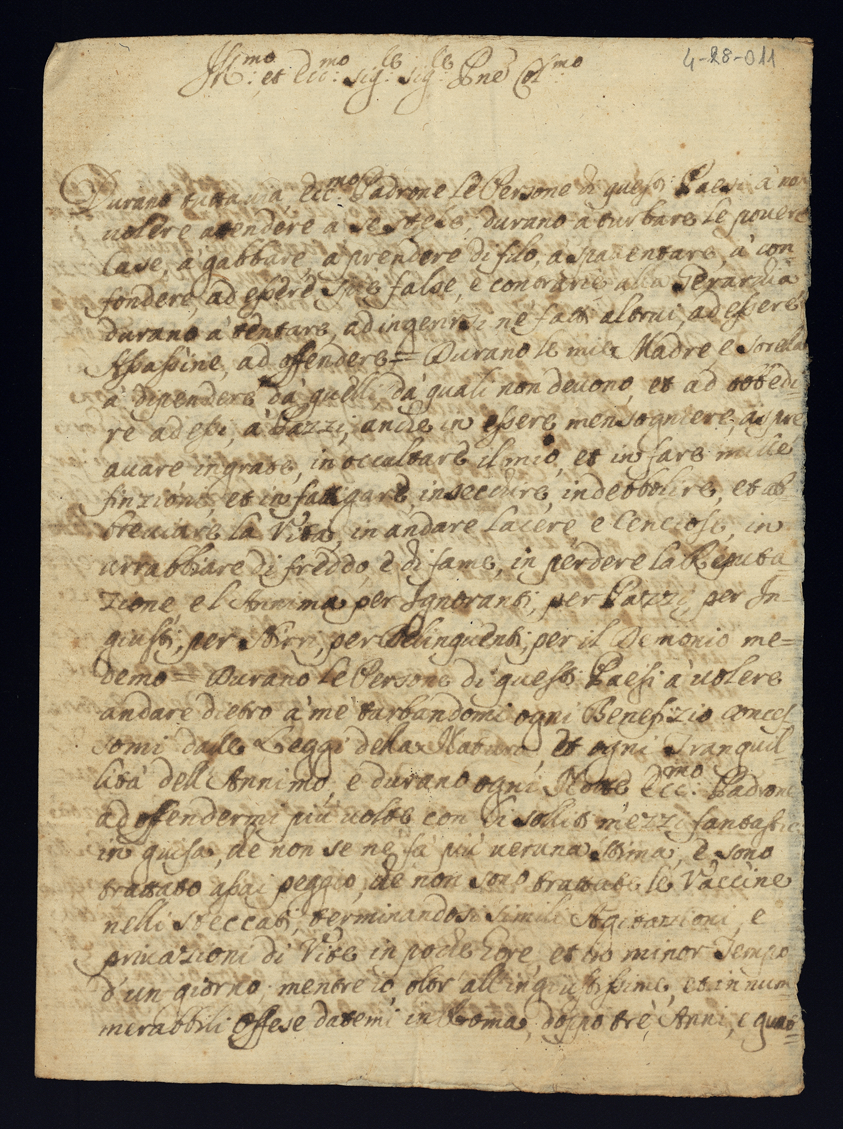 4-28-011
Ill:mo et Ecc:mo Sig:re Sig:re Pne Col:mo
Durano tuttavia Ecc:mo Padrone le Persone di questi Paesi à non
volere attendere à se stesse, durano à turbare le povere
Case, à gabbare, à prendere di filo, à spaventare, à con
fondere, ad essere spie false, e contrarie alla Gerarchia
durano à tentare, ad ingerirsi ne fatti altrui, ad essere
Assassine, ad offendere = Durano le mie Madre e Sorella
à dipendere dà quelli, dà quali non devono, et ad obbedi-
re ad essi, à Pazzi, anche in essere mensogniere, aspre
avare ingrate, in occultare il mio, et in fare mille
finzioni, et in fatigare, in seccure, indebbolire, et ab
breviare la Vita, in andare lacere, e Cenciose, in
arrabbiare di freddo, e di fame, in perdere la Riputa
zione, e l'Annima per Ignoranti, per Pazzi, per In-
giusti, per Sbirri, per Delinquenti, per il Demonio me=
demo = Durano le Persone di questi Paesi à volere
andare dietro à me turbandomi ogni Benefizio conces
somi dalle Leggi della Natura, et ogni Tranquil-
lità dell'Annimo, e durano ogni Notte Ecc:mo Padrone
ad offendermi più volte con li soliti mezzi fantastici
in guisa, che non se ne fà più veruna stima, e sono
trattato assai peggio, che non sono trattate le Vaccine
nelli steccati, terminandosi simili Agitazioni, e
privazioni di Vite in poche hore, et in minor Tempo
d'un giorno; mentre io oltr' all'ingiustissime, et innum
merabbili Offese datemi in Roma, doppo trè Anni, e quat=